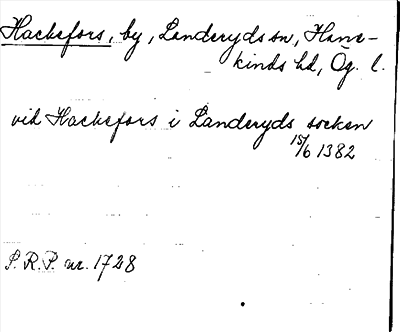 Hackefors, by, Landeryds sn, Hane-
kinds hd, Ög. l.
vid Hackefors i Landeryds socken
15/6 1382
S. R. P. nr. 1728